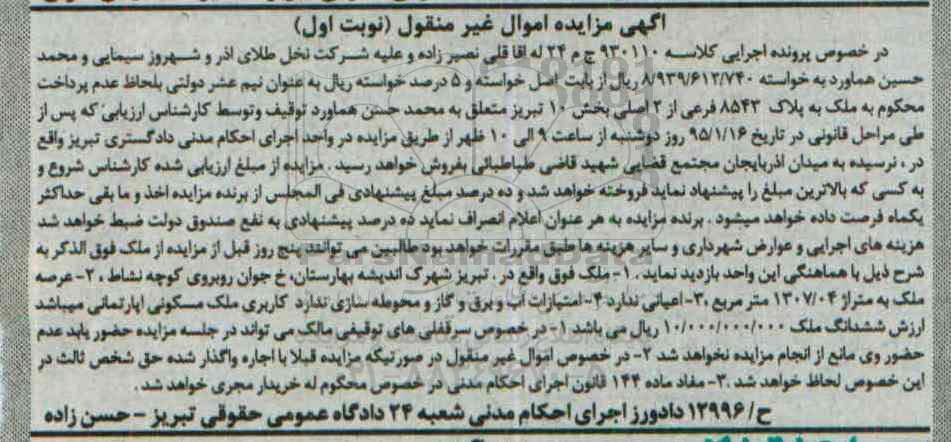 آگهی مزایده اموال غیر منقول (نوبت اول)
در خصوص پرونده اجرایی کلاسه ۹۳۰۱۱۰ ج م ۲۴ له اقا قلی نصیر زاده و علیه شرکت نخل طلای اذر و شهروز سیمایی و محمد
حسین هماورد به خواسته ۸/۹۳۹/۶۱۲/۷۴۰ ریال از بابت اصل خواسته و ۵ درصد خواسته ریال به عنوان نیم عشر دولتی بلحاظ عدم پرداخت
محکوم به ملک به پلاک ۸۵۴۳ فرعی از ۲ اصلی بخش ۱۰ تبریز متعلق به محمد حسن هماورد توقیف وتوسط کارشناس ارزیابی که پس از
طی مراحل قانونی در تاریخ ۹۵/۱/۱۶ روز دوشنبه از ساعت ۹ الی ۱۰ ظهر از طریق مزایده در واحد اجرای احکام مدنی دادگستری تبریز واقع
در ، نرسیده به میدان اذربایجان مجتمع قضایی شهید قاضی طباطبائی بفروش خواهد رسید . مزایده از مبلغ ارزیابی شده کارشناس شروع و
به کسی که بالاترین مبلغ را پیشنهاد نماید فروخته خواهد شد و ده درصد مبلغ پیشنهادی فی المجلس از برنده مزایده اخذ و ما بقی حداکثر
یکماه فرصت داده خواهد میشود . برنده مزایده به هر عنوان اعلام انصراف نماید ده درصد پیشنهادی به نفع صندوق دولت ضبط خواهد شد
هزینه های اجرایی و عوارض شهرداری و سایر هزینه ها طبق مقررات خواهد بود طالبین می توانند پنج روز قبل از مزایده از ملک فوق الذکر به
شرح ذیل با هماهنگی این واحد بازدید نماید . ۱- ملک فوق واقع در . تبریز شهرک اندیشه بهارستان، خ جوان روبروی کوچه نشاط ، ۲- عرصه
ملک به متراژ ۱۳۰۷/۰۴ متر مربع ،۳- اعیانی ندارد ۴- امتیازات آب و برق و گاز و محوطه سازی ندارد کاربری ملک مسکونی اپارتمانی میباشد
ارزش ششدانگ ملک ۱۰/۰۰۰/۰۰۰/۰۰۰ ریال می باشد ۱- در خصوص سرقفلی های توقیفی مالک می تواند در جلسه مزایده حضور یابد عدم
حضور وی مانع از انجام مزایده نخواهد شد ۲- در خصوص اموال غیر منقول در صورتیکه مزایده قبلا با اجاره واگذار شده حق شخص ثالث در
این خصوص لحاظ خواهد شد .۳- مفاد ماده ۱۴۴ قانون اجرای احکام مدنی در خصوص محکوم له خریدار مجری خواهد شد .
ح/ ۱۲۹۹۶ دادورز اجرای احکام مدنی شعبه ۲۴ دادگاه عمومی حقوقی تبریز – حسن زاده